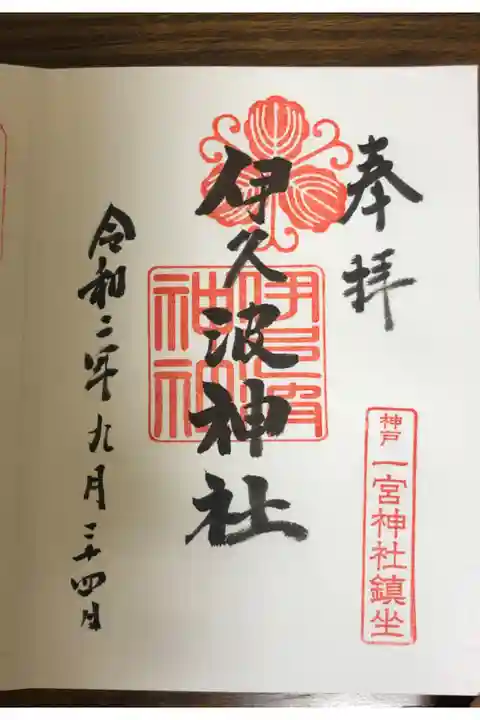 奉拝
神戸 一宮神社鎮坐
伊久波神社
伊久波
神社
令和二年九月二十四日